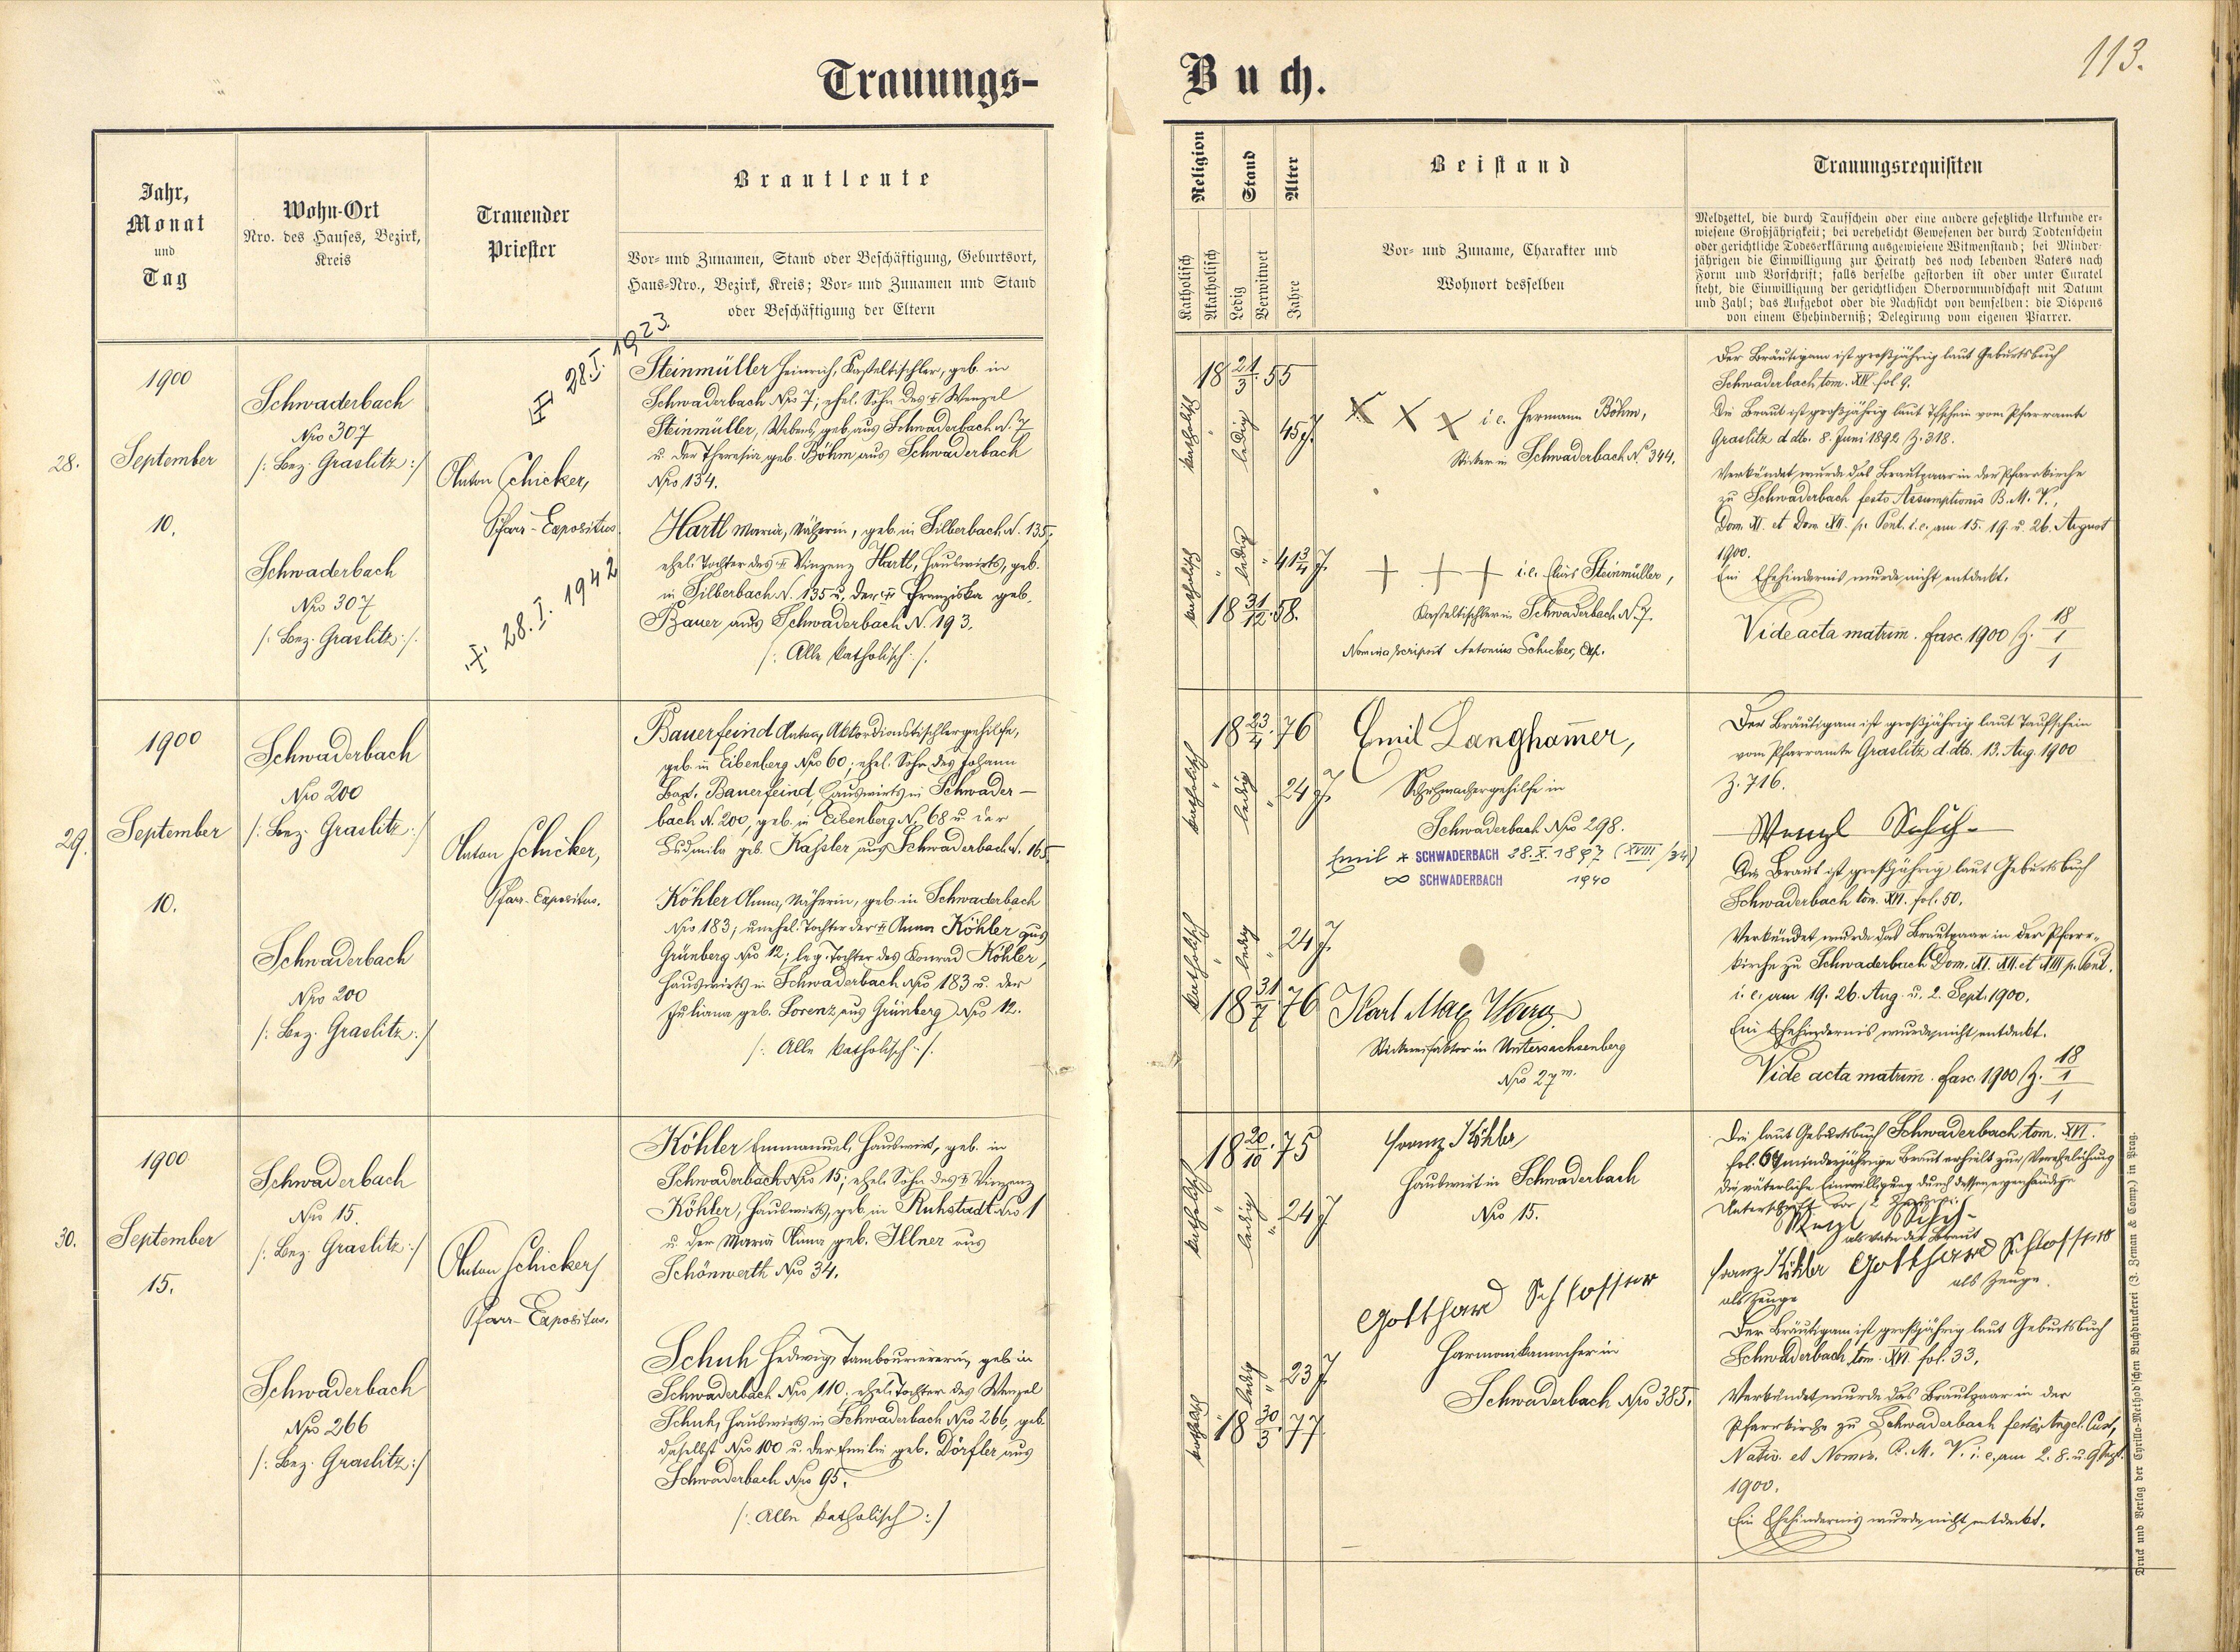 Trauungs-
Buch.
113.
Jahr,
Monat
und
Tag
Wohn-Ort
Nro. des Hauses, Bezirk,
Kreis
Trauender
Priester
Brautleute
Vor- und Zunamen, Stand oder Beschäftigung, Geburtsort,
Haus-Nro., Bezirk, Kreis; Vor- und Zunamen und Stand
oder Beschäftigung der Eltern
Religion
Katholisch
Akatholisch
Stand
Ledig
Verwitwet
Alter
Jahre
Beistand
Vor- und Zuname, Charakter und
Wohnort desselben
Trauungsrequisiten
Meldzettel, die durch Taufschein oder eine andere gesetzliche Urkunde er-
wiesene Großjährigkeit; bei verehelicht Gewesenen der durch Todtenschein
oder gerichtliche Todeserklärung ausgewiesene Witwenstand; bei Minder-
jährigen die Einwilligung zur Heirath des noch lebenden Vaters nach
Form und Vorschrift; falls derselbe gestorben ist oder unter Curatel
steht, die Einwilligung der gerichtlichen Obervormundschaft mit Datum
und Zahl; das Aufgebot oder die Nachsicht von demselben: die Dispens
von einem Ehehinderniß; Delegirung vom eigenen Pfarrer.
28.
1900
September
10.
Schwaderbach
Nro 307
/: Bez. Graslitz :/
Schwaderbach
Nro 307
/: Bez. Graslitz :/
Anton Schicker,
Pfarr-Expositus.
28.I. 1923
28.I. 1942
Steinmüller Heinrich, Kasteltischler, geb. in
Schwaderbach Nro 7; ehel. Sohn des † Wenzel
Steinmüller, Webers, geb. aus Schwaderbach N. 7
u. der Theresia geb. Böhm, aus Schwaderbach
Nro 134.
Hartl Maria, Näherin, geb. in Silberbach N. 135,
ehel. Tochter des † Vinzenz Hartl, Hauswirts, geb.
in Silberbach N. 135 u. der † Franziska geb.
Bauer aus Schwaderbach N. 193.
/: Alle katholisch :/
18 21/3 55
katholisch
ledig
45 J.
katholisch
ledig
41 3/4 J.
18 31/12 58.
X X X i.e. Hermann Böhm,
Sticker in Schwaderbach N. 344.
+ + + i.e. Elias Steinmüller,
Kasteltischler in Schwaderbach N. 7.
Nomina scripsit Antonius Schicker, Exp.
Der Bräutigam ist großjährig laut Geburtsbuch
Schwaderbach, tom. XIV. fol. 9.
Die Braut ist großjährig laut Tfschein vom Pfarramte
Graslitz d.dto. 8. Juni 1892 Z. 318.
Verkündet wurde das Brautpaar in der Pfarrkirche
zu Schwaderbach festo Assumptionis B.M.V.,
Dom. XI. et Dom. XII. p. Pent. i.e. am 15. 19. u. 26. August
1900.
Ein Ehehindernis wurde nicht entdeckt.
Vide acta matrim. fasc. 1900 Z. 18/1/1
29.
1900
September
10.
Schwaderbach
Nro 200
/: Bez. Graslitz :/
Schwaderbach
Nro 200
/: Bez. Graslitz :/
Anton Schicker,
Pfarr-Expositus.
Bauerfeind Anton, Akkordionstischlergehilfe,
geb. in Eibenberg Nro 60; ehel. Sohn des Johann
Bapt. Bauerfeind, Hauswirts in Schwader-
bach N. 200, geb. in Eibenberg N. 68 u. der
Ludmila geb. Kassler aus Schwaderbach N. 165
Köhler Anna, Näherin, geb. in Schwaderbach
Nro 183; unehel. Tochter der † Anna Köhler aus
Grünberg Nro 12; leg. Tochter des Konrad Köhler,
Hauswirts in Schwaderbach Nro 183 u. der
Juliana geb. Lorenz aus Grünberg Nro 12.
/: Alle katholisch :/
18 23/4 76
katholisch
ledig
24 J.
katholisch
ledig
24 J.
18 31/7 76
Emil Langhammer,
Schuhmachergehilfe in
Schwaderbach Nro 298.
Emil * SCHWADERBACH 28.X.1897 (XVIII/34)
∞ SCHWADERBACH 1940
Karl Max
Stickereifaktor in Untersachsenberg
Nro 27 m.
Der Bräutigam ist großjährig laut Taufschein
vom Pfarramte Graslitz d.dto. 13. Aug. 1900
Z. 716.
Wenzl Schuh
Die Braut ist großjährig laut Geburtsbuch
Schwaderbach tom. XVI. fol. 50.
Verkündet wurde das Brautpaar in der Pfarr-
kirche zu Schwaderbach Dom. XI. XII. et XIII p. Pent.
i.e. am 19. 26. Aug. u. 2. Sept. 1900.
Ein Ehehindernis wurde nicht entdeckt.
Vide acta matrim. fasc. 1900 Z. 18/1/1
30.
1900
September
15.
Schwaderbach
Nro 15.
/: Bez. Graslitz :/
Schwaderbach
Nro 266
/: Bez. Graslitz :/
Anton Schicker,
Pfarr-Expositus.
Köhler Emmanuel, Hauswirt, geb. in
Schwaderbach Nro 15; ehel. Sohn des † Vinzenz
Köhler, Hauswirts, geb. in Ruhstadt Nro 1
u. der Maria Anna geb. Illner aus
Schönwerth Nro 34.
Schuh Hedwig, Tambouriererin, geb. in
Schwaderbach Nro 110; ehel. Tochter des Wenzel
Schuh, Hauswirts in Schwaderbach Nro 266, geb.
daselbst Nro 100 u. der Emilie geb. Dörfler aus
Schwaderbach Nro 95.
/: Alle katholisch :/
18 20/10 75
katholisch
ledig
24 J.
katholisch
ledig
23 J.
18 30/3 77
Franz Köhler
Hauswirt in Schwaderbach
Nro 15.
Gotthard Schlosser
Harmonikamacher in
Schwaderbach Nro 385.
Die laut Geburtsbuch Schwaderbach, tom. XVI.
fol. 64 minderjährige Braut erhielt zur Verehelichung
die väterliche Einwilligung durch dessen eigenhändige
Unterschrift vor 2 Zeugen:
Wenzl Schuh
als Vater der Braut
Franz Köhler Gotthard Schlosser
als Zeuge.
als Zeuge
Der Bräutigam ist großjährig laut Geburtsbuch
Schwaderbach, tom. XVI. fol. 33.
Verkündet wurde das Brautpaar in der
Pfarrkirche zu Schwaderbach festis Angel. Cust.,
Nativ. et Nomin. B.M.V. i.e. am 2. 8. u. 9. Sept.
1900.
Ein Ehehindernis wurde nicht entdeckt.
Druck und Verlag der Cyrillo-Method'schen Buchdruckerei (J. Zeman & Comp.) in Prag.